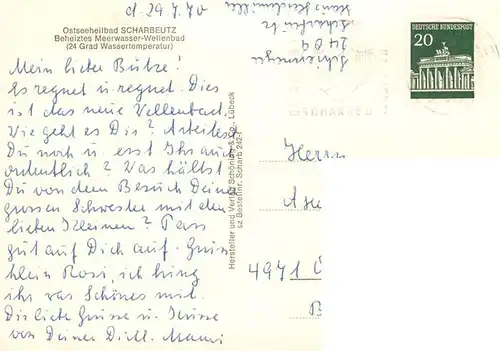 d. 29.7.70
Ostseeheilbad SCHARBEUTZ
Beheiztes Meerwasser-Wellenbad
(24 Grad Wassertemperatur)
Mein lieber Butze!
Es regnet u regnet. Dies
ist das neue Wellenbad.
Wie geht es Dir? Arbeitest
Du noch u. erst Ihr auch
ordentlich? Was hältst
Du von dem Besuch Deiner
grossen Schwester mit den
lieben Kleinen? Pass
gut auf Dich auf. Grüss
klein Rosi, ich bring
ihr was Schönes mit.
Die liebe Grüsse u. Küsse
von Deiner Dich. Mami
Hersteller und Verlag Schöning & Co., Lübeck
sz Bestellnr. Scharb. 242-1
Scharbeutz
2409
DEUTSCHE BUNDESPOST
20
Herrn
4971